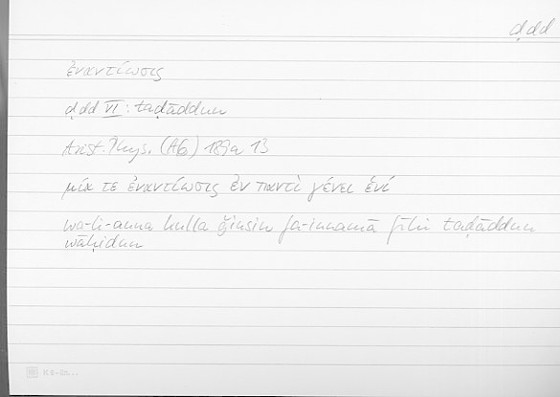 ḍdd
ἐναντίωσις
ḍdd VI: taḍāddun
Arist. Phys. (A6) 189a 13
μία τε ἐναντίωσις ἐν παντὶ γένει ἑνί
wa-li-anna kulla ǧinsin fa-innamā fīhi taḍāddun
wāḥidun